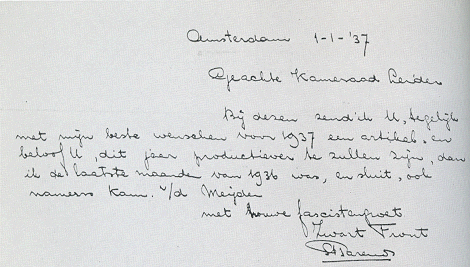 Amsterdam 1-1-'37
Geachte Kameraad Leider
Bij dezen zend ik U, tegelijk
met mijn beste wenschen voor 1937 een artikel, en
beloof U, dit jaar productiever te zullen zijn, dan
ik de laatste maanden van 1936 was, en sluit, ook
namens Kam. v/d Meijden
met trouwe fascistengroet
Zwart Front